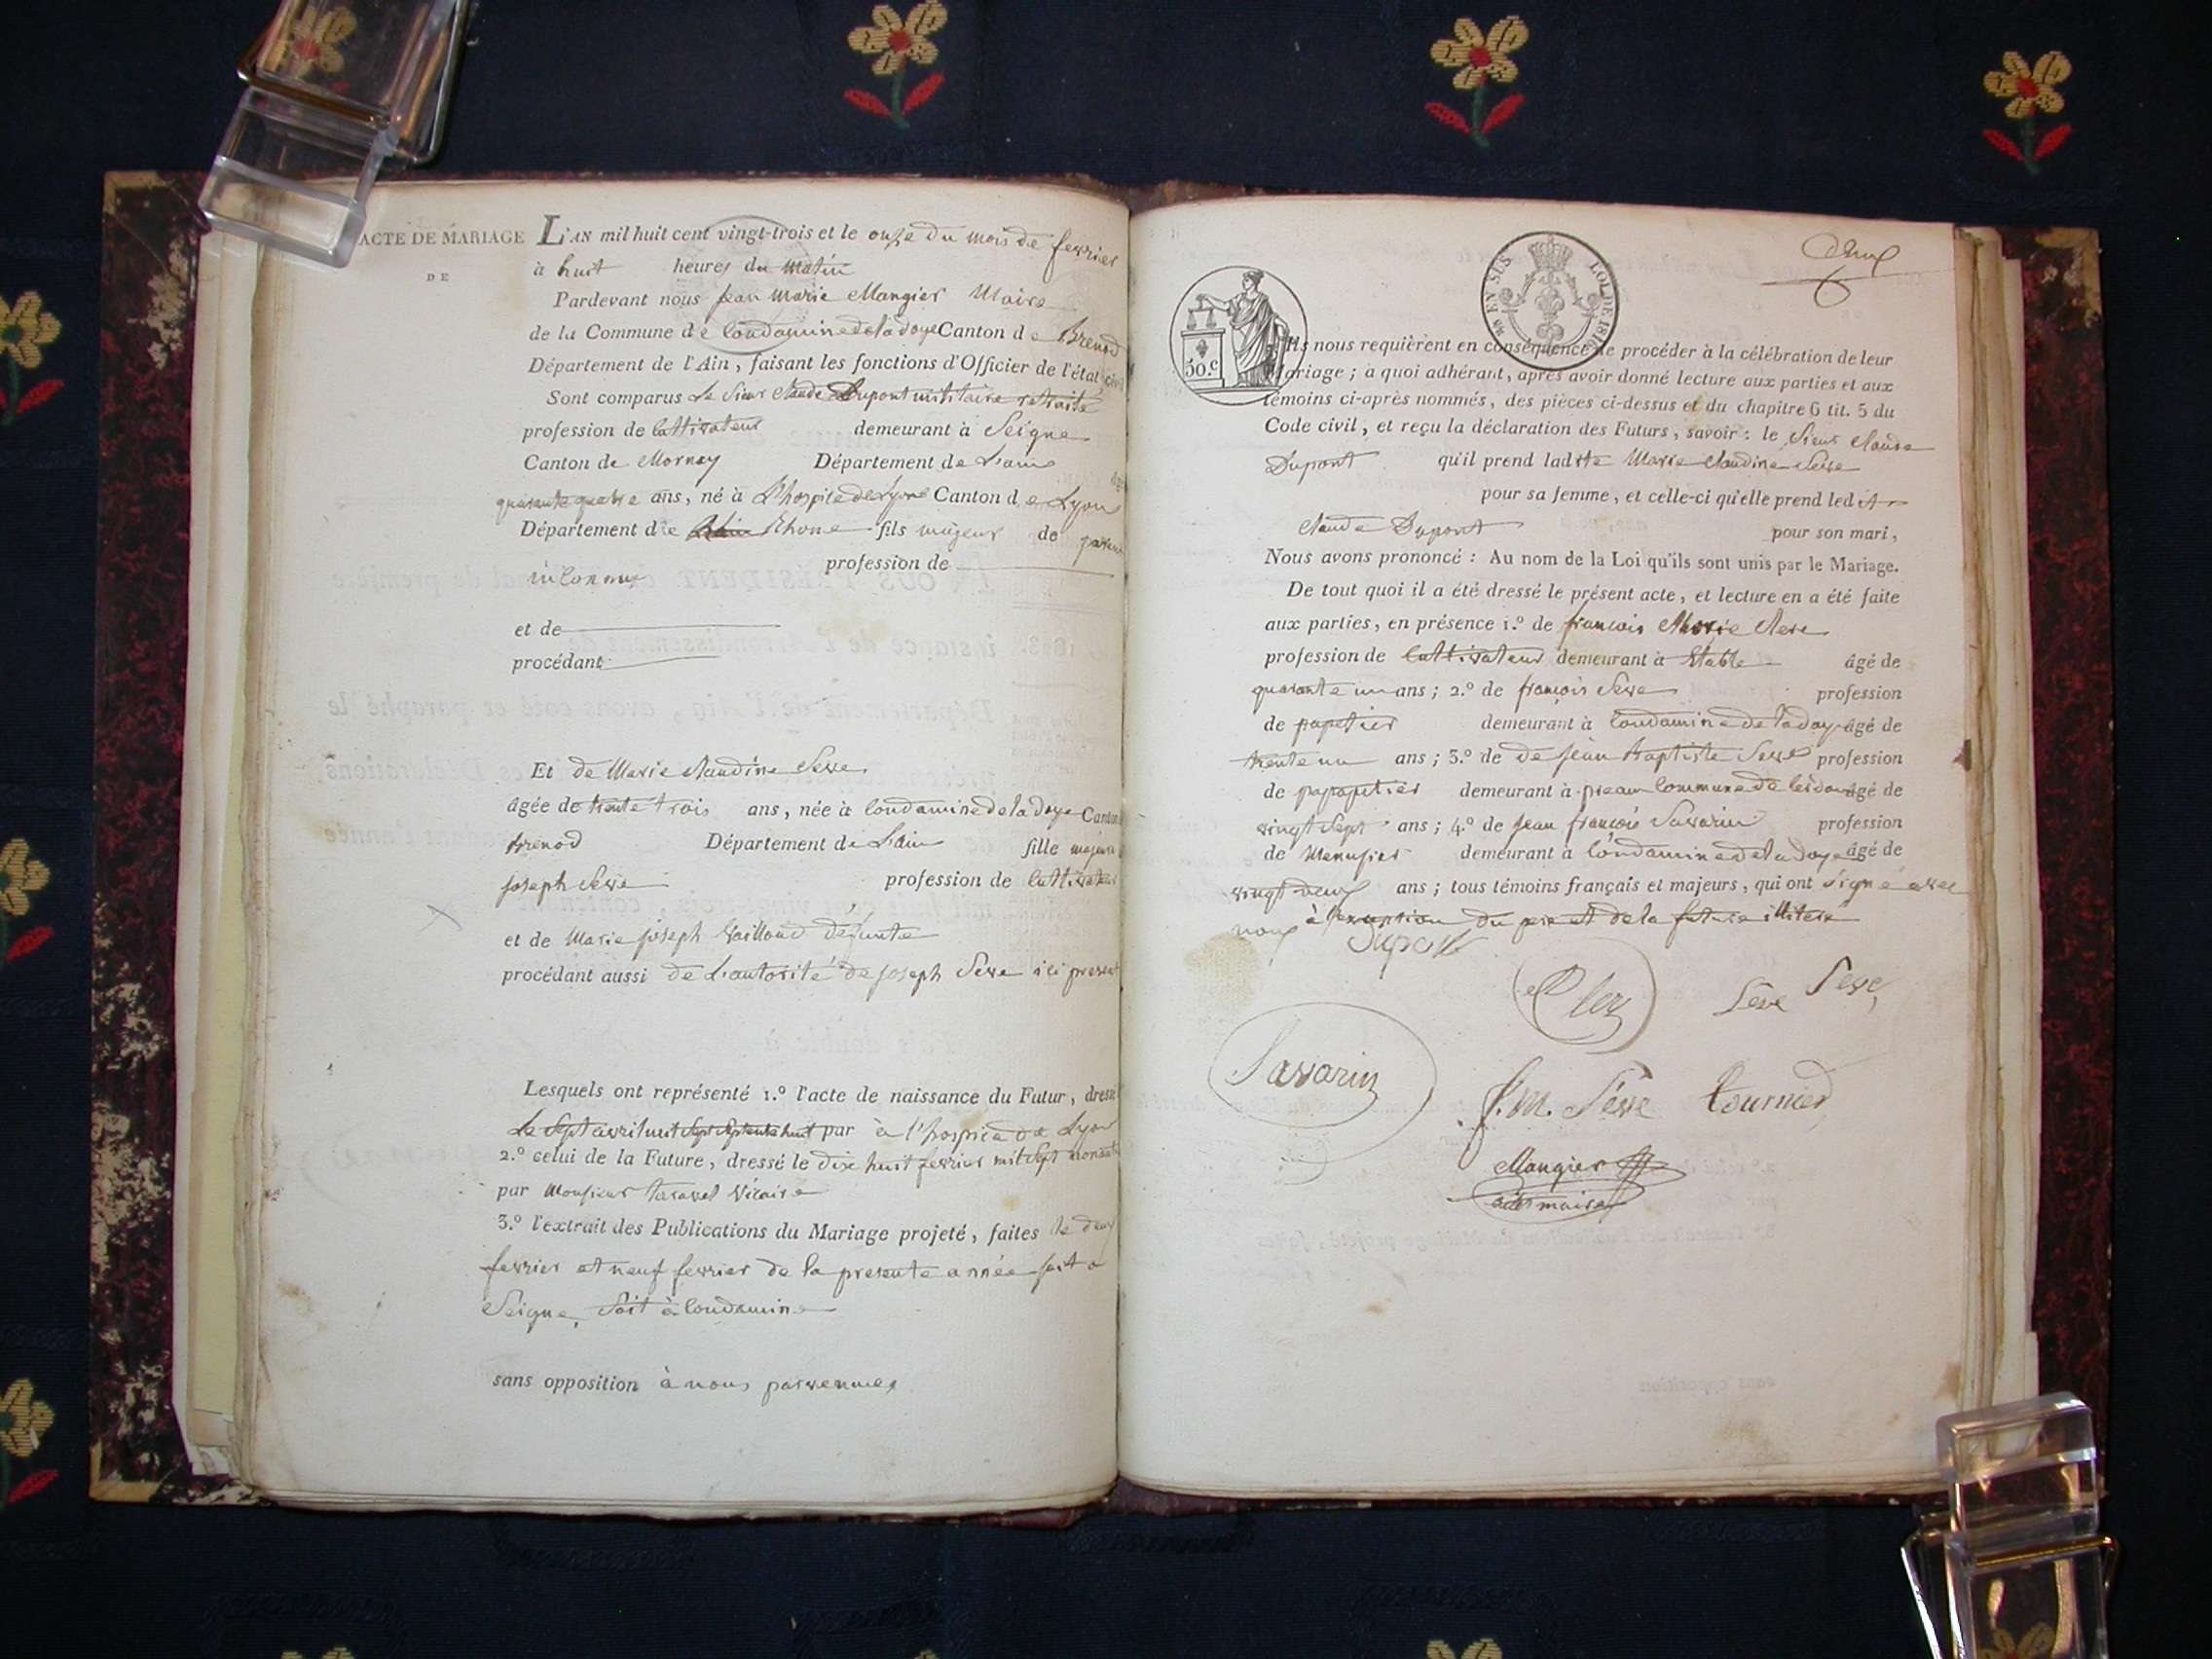 ACTE DE MARIAGE
DE
L'AN mil huit cent vingt-trois et le onze du mois de fevrier
à huit heures du matin
Pardevant nous jean marie Mangier Maire
de la Commune de Condamine de la doye Canton de Brenod
Département de l'Ain, faisant les fonctions d'Officier de l'état civil
Sont comparus Le Sieur Claude Dupont militaire retraité
profession de Cultivateur demeurant à Seigne
Canton de Mornay Département de L'ain
quarante quatre ans, né à L'hospice de Lyon Canton de Lyon
Département de Rhone fils majeur de parens
inconnus profession de
et de
procédant
Et de Marie Claudine Seve
âgée de trente trois ans, née à Condamine de la doye Canton
Brenod Département de L'ain fille majeure
joseph Seve profession de Cultivateur
et de Marie joseph Vailloud défunte
procédant aussi de L'autorité de joseph Seve ici present
Lesquels ont représenté 1.º l'acte de naissance du Futur, dressé
Le Sept avril mil Sept Septante huit par à l'hospice de Lyon
2.º celui de la Future, dressé le dix huit fevrier mil Sept nonante
par Monsieur Vicaire
3.º l'extrait des Publications du Mariage projeté, faites le deux
fevrier et neuf fevrier de la presente année soit a
Seigne, Soit à Condamine
sans opposition à nous parvenues
deux
30.C
EN SUS
LOI DE 1816
Ils nous requièrent en conséquence de procéder à la célébration de leur
Mariage ; à quoi adhérant, après avoir donné lecture aux parties et aux
témoins ci-après nommés, des pièces ci-dessus et du chapitre 6 tit. 5 du
Code civil, et reçu la déclaration des Futurs, savoir : le Sieur Claude
Dupont qu'il prend ladite Marie Claudine Seve
pour sa femme, et celle-ci qu'elle prend ledit
Claude Dupont pour son mari,
Nous avons prononcé : Au nom de la Loi qu'ils sont unis par le Mariage.
De tout quoi il a été dressé le présent acte, et lecture en a été faite
aux parties, en présence 1.º de francois Marie
profession de Cultivateur demeurant à Etable âgé de
quarante un ans ; 2.º de françois Seve profession
de papetier demeurant à Condamine de la doye âgé de
trente un ans ; 3.º de de jean Baptiste Seve profession
de papapetier demeurant à Commune de âgé de
vingt Sept ans ; 4.º de jean françois Savarin profession
de Menusier demeurant à Condamine de la doye âgé de
vingt deux ans ; tous témoins français et majeurs, qui ont signé avec
nous à l'exception du pere et de la future
Dupont
Seve Seve
Savarin J.M. Séve tournier
Mangier
maire